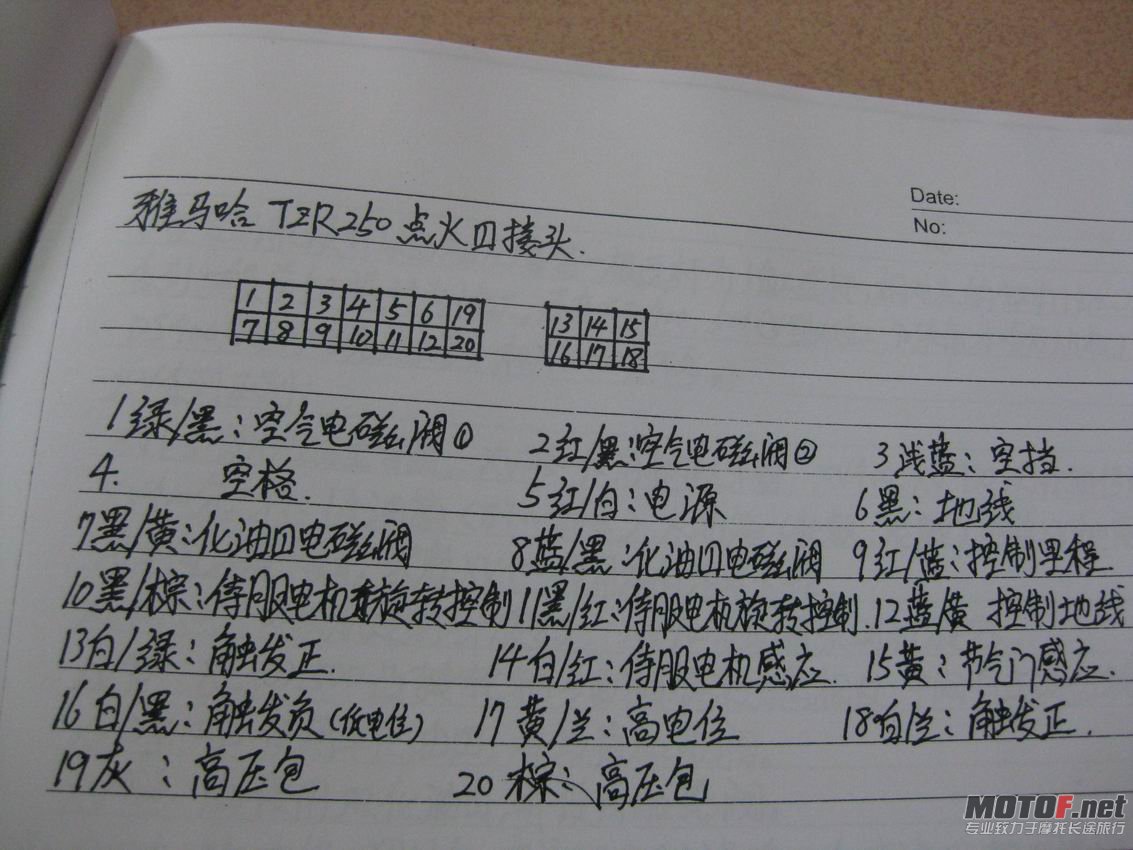 Date:
No:
雅马哈 TZR250 点火口接头.
1 2 3 4 5 6 19
7 8 9 10 11 12 20
13 14 15
16 17 18
1 绿/黑:空气电磁阀① 2 红/黑:空气电磁阀② 3 浅蓝:空挡.
4. 空格. 5 红/白:电源 6 黑:地线
7 黑/黄:化油口电磁阀 8 蓝/黑:化油口电磁阀 9 红/蓝:控制里程
10 黑/棕:侍服电机旋转控制 11 黑/红:侍服电机旋转控制. 12 蓝/黄 控制地线
13 白/绿:触发正. 14 白/红:侍服电机感应. 15 黄:节气门感应.
16 白/黑:触发负(低电位) 17 黄/兰:高电位 18 白/兰:触发正.
19 灰:高压包 20 棕:高压包
MOTOF.net
专业致力于摩托长途旅行